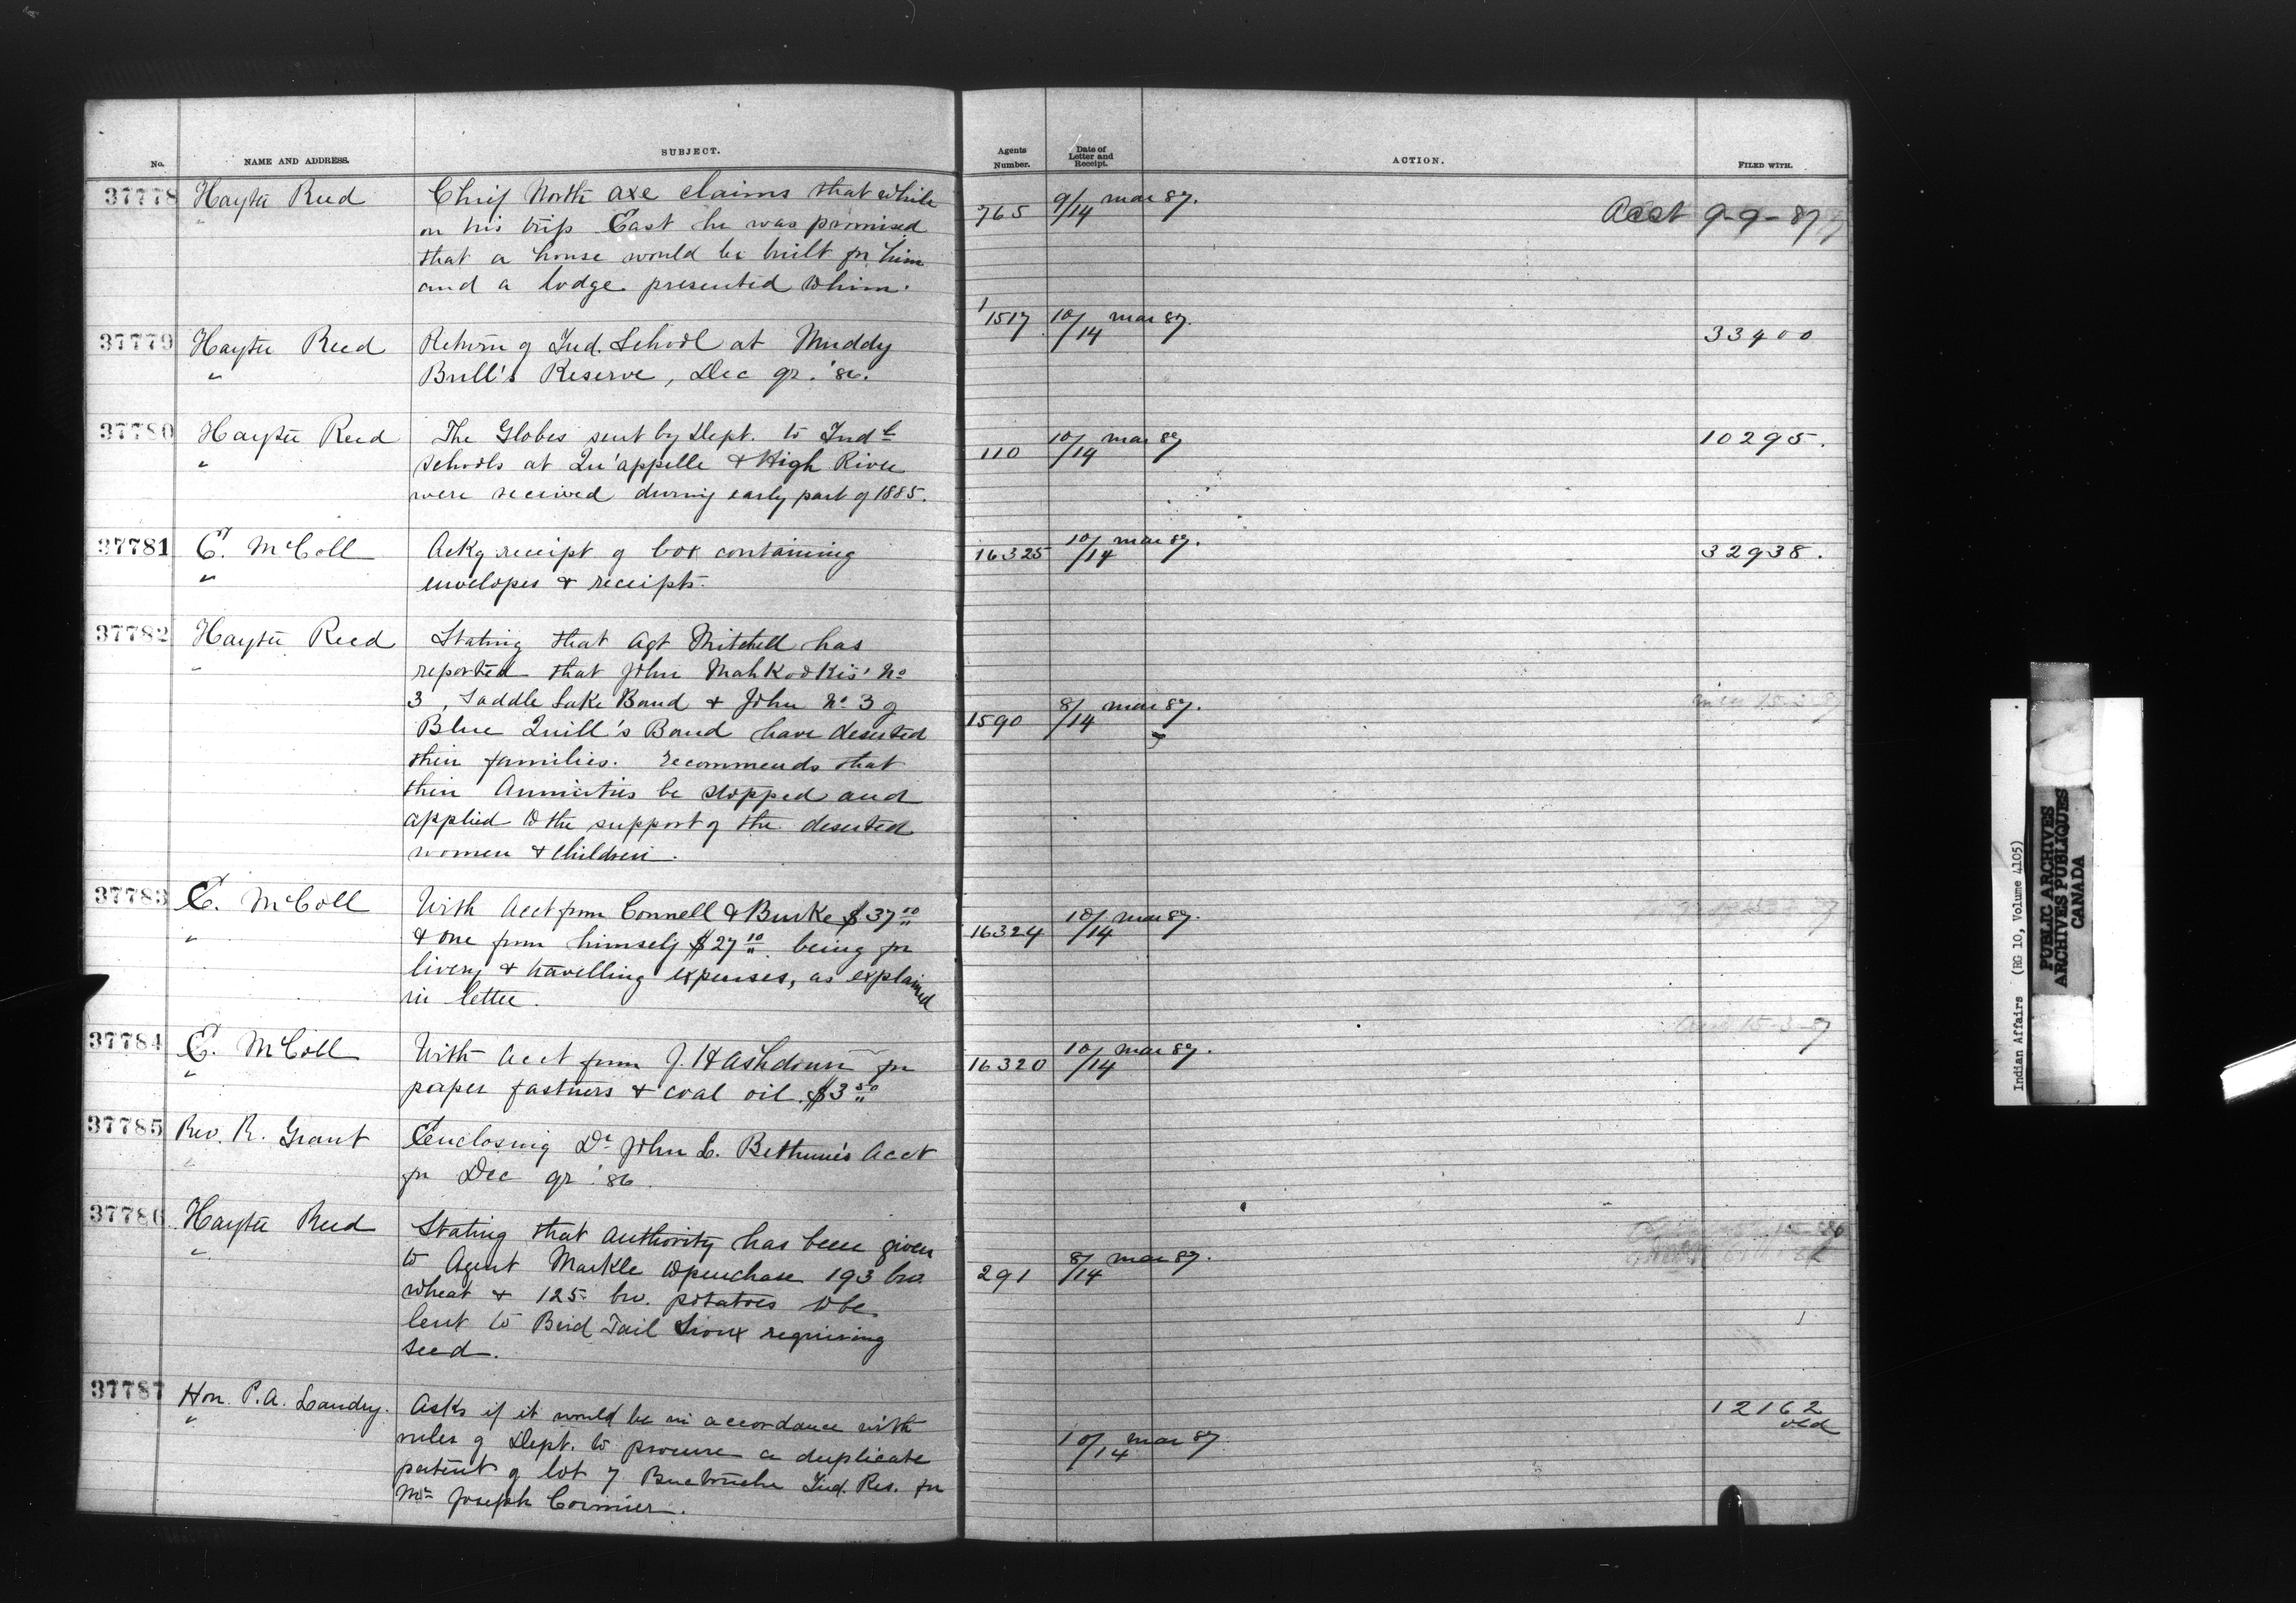 No. NAME AND ADDRESS. SUBJECT. Agents Number. Date of Letter and Receipt. ACTION. FILED WITH.
37778 Hayter Reed Chief North axe claims that while
on his trip East he was promised
that a house would be built for him
and a lodge presented to him.
765 9/14 mar 87. Acct 9-9-87
37779 Hayter Reed Return of Ind. School at Muddy
" Bull's Reserve, Dec qr. '86.
1517 10/14 mar 87. 33400
37780 Hayter Reed The Globes sent by Dept. to Indl
" schools at Qu'appelle & High River
were received during early part of 1885.
110 10/14 mar 87 10295.
37781 E. McColl Ackg receipt of box containing
" envelopes & receipts.
16325 10/14 mar 87. 32938.
37782 Hayter Reed Stating that Agt Mitchell has
" reported that John Mahkookis' No
3, Saddle Lake Band & John No 3 of
Blue Quill's Band have deserted
their families. recommends that
their Annuities be stopped and
applied to the support of the deserted
women & children.
1590 8/14 mar 87.
37783 E. McColl With Acct from Connell & Burke $37 10
" & one from himself $27 10 being for
livery & travelling expenses, as explained
in letter.
16324 10/14 mar 87.
37784 E. McColl With acct from J. H Ashdown for
" paper fastners & coal oil. $3 50
16320 10/14 mar 87.
37785 Rev. R. Grant Enclosing Dr John L. Bethune's Acct
" for Dec qr '86.
37786 Hayter Reed Stating that authority has been given
" to Agent Markle to purchase 193 bus.
wheat & 125 bu. potatoes to be
lent to Bird Tail Sioux requiring
seed.
291 8/14 mar 87.
37787 Hon. P. A. Landry. Asks if it would be in accordance with
" rules of Dept. to procure a duplicate
patent of lot 7 Buctouche Ind. Res. for
Mr Joseph Cormier.
10/14 mar 87 12162
old
Indian Affairs (RG 10, Volume 4105)
PUBLIC ARCHIVES
ARCHIVES PUBLIQUES
CANADA